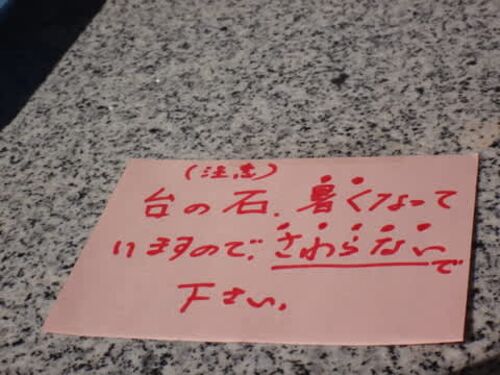 (注意)
台の石、暑くなって
いますので、さわらないで
下さい。